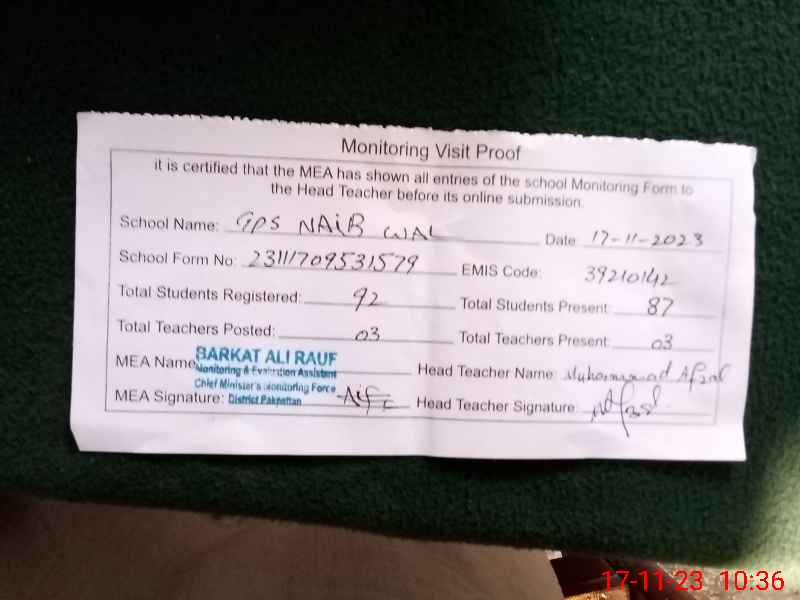 Monitoring Visit Proof
it is certified that the MEA has shown all entries of the school Monitoring Form to
the Head Teacher before its online submission.
School Name: GPS NAIB WAL Date: 17-11-2023
School Form No: 23111709531579 EMIS Code: 39210142
Total Students Registered: 92 Total Students Present: 87
Total Teachers Posted: 03 Total Teachers Present: 03
MEA Name BARKAT ALI RAUF Head Teacher Name: Muhammad Afzal
Monitoring & Evaluation Assistant
Chief Minister's Monitoring Force
MEA Signature: District Pakpattan Head Teacher Signature: Afzal
17-11-23 10:36